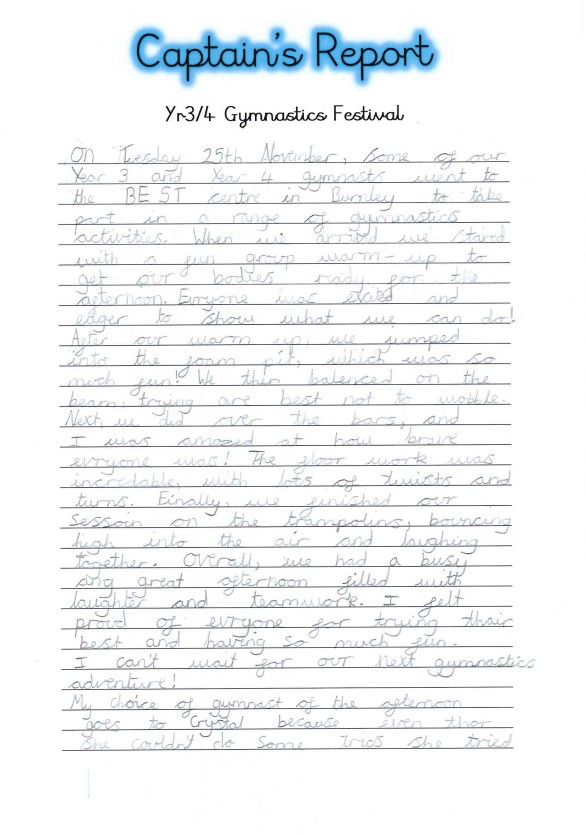 Captain's Report
Yr3/4 Gymnastics Festival
On Tuesday 25th November, some of our
Year 3 and Year 4 gymnasts went to
the BEST centre in Burnley to take
part in a range of gymnastics
activities. When we arrived we stared
with a fun group warm-up to
get our bodies ready for the
afternoon. Evryone was exited and
eager to show what we can do!
After our warm up, we jumped
into the foam pit, which was so
much fun! We then balenced on the
beam, trying are best not to wobble.
Next, we did over the bars, and
I was amazed at how brave
evryone was! The floor work was
incredable, with lots of twists and
turns. Finally, we finished our
sessoin on the trampolins, bouncing
high into the air and laughing
together. Overall, we had a busy
and great afternoon filled with
laughter and teamwork. I felt
proud of evryone for trying thair
best and having so much fun.
I can't wait for our next gymnastics
adventure!
My choice of gymnast of the afternoon
goes to Crystal because even thor
she couldn't do some trics she tried